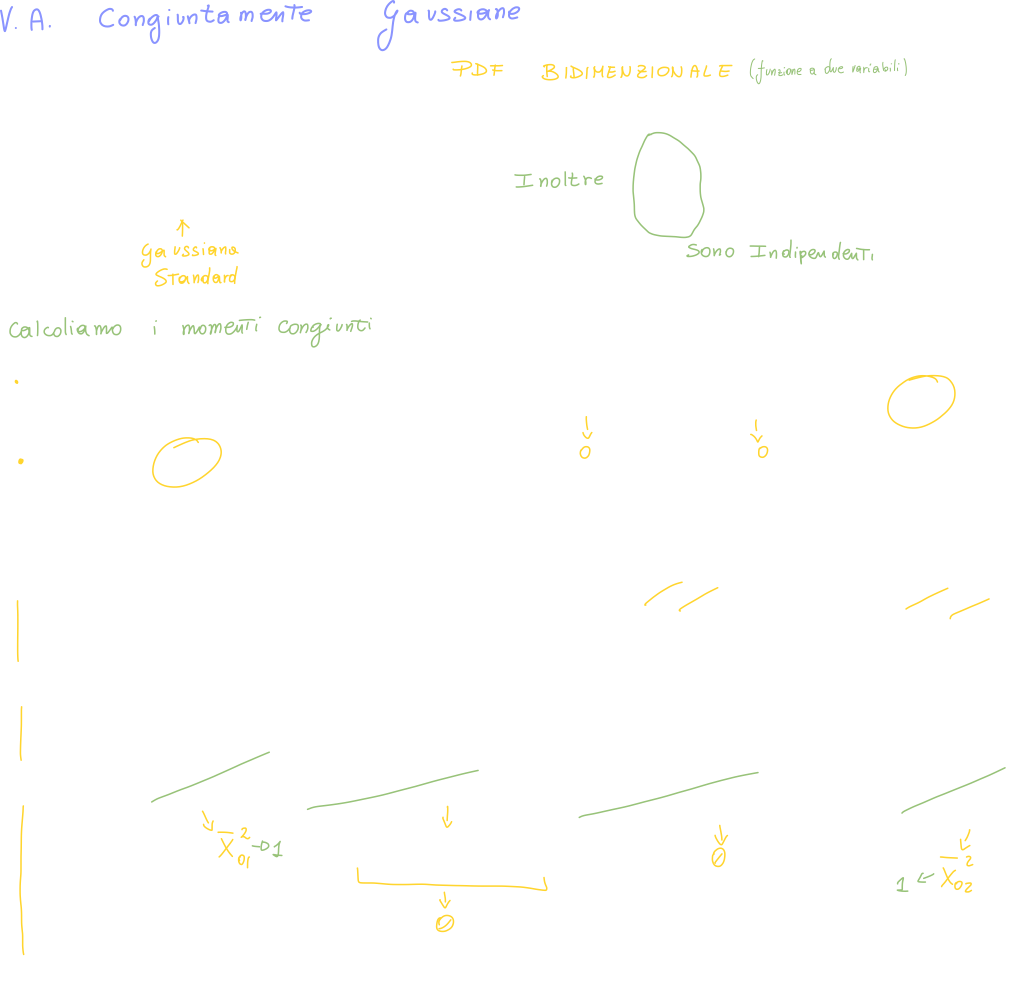 V. A. Congiuntamente Gaussiane
PDF BIDIMENZIONALE (funzione a due variabili)
Inoltre
Sono Indipendenti
Gaussiana
Standard
Calcoliamo i momenti congiunti
0 0
X̄²₀₁ → 1
0
0
1 ← X̄²₀₂